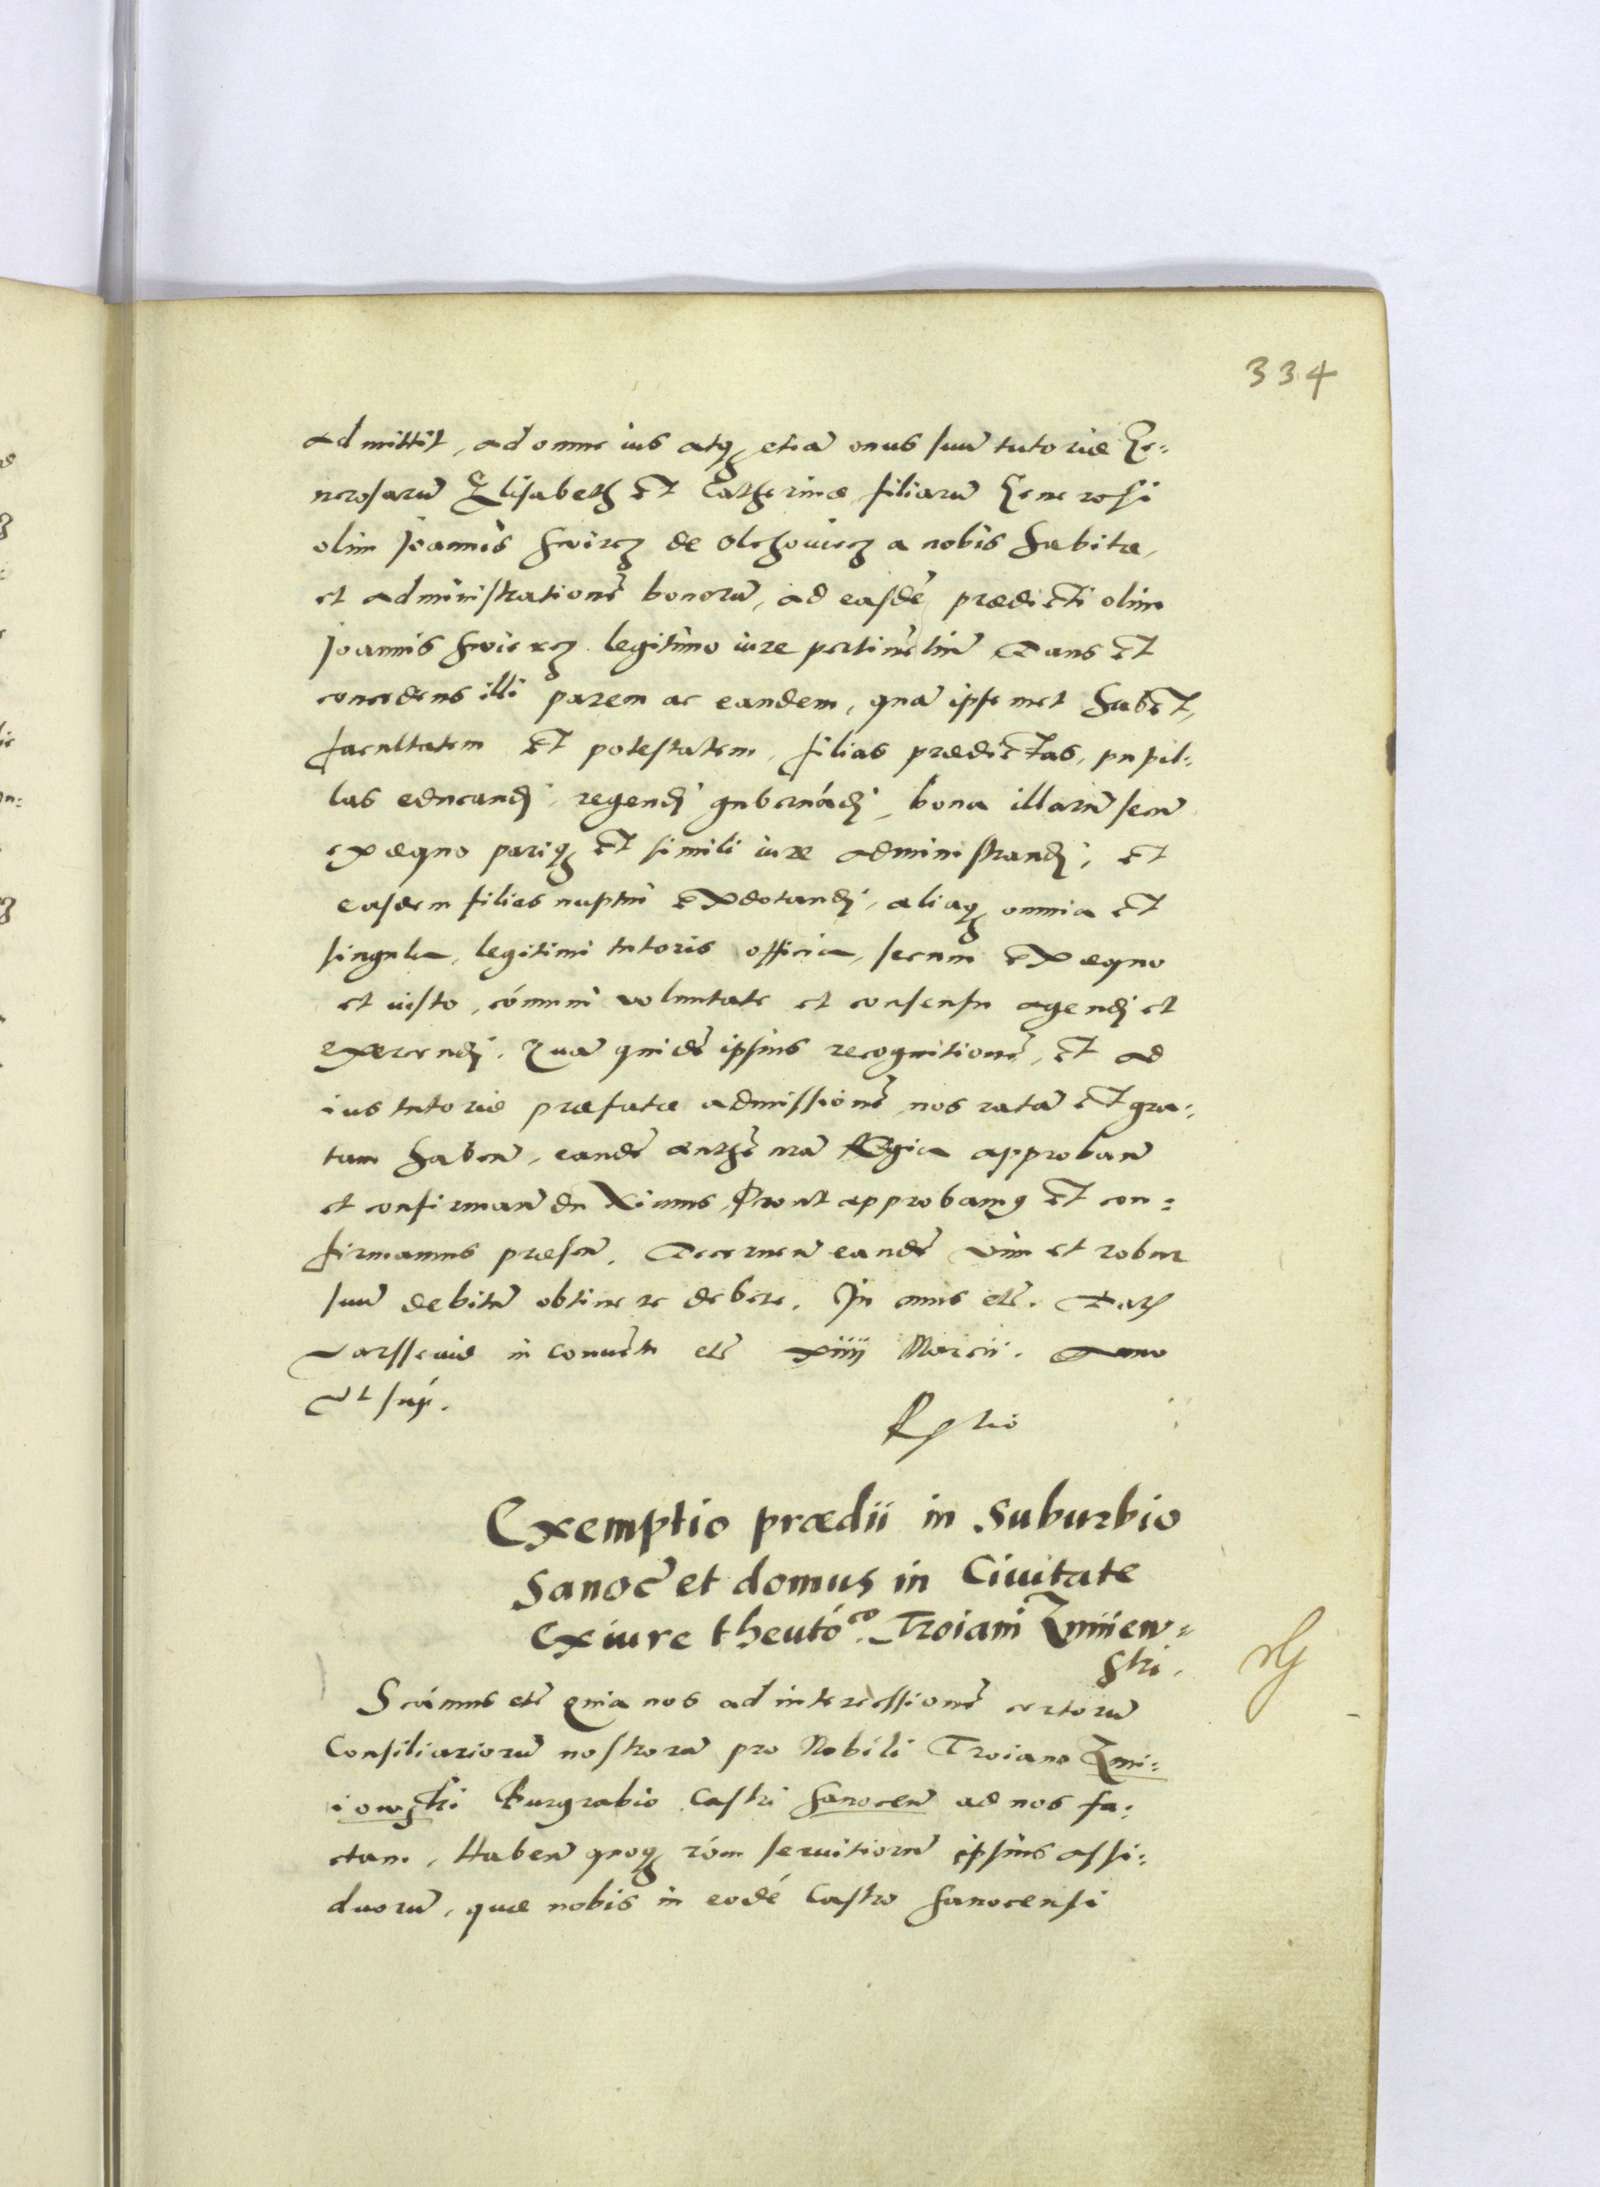 334
admittit, ad omne ius atq, etiã onus suũ tutoriæ Ge-
nerosarũ Elisabeth et Catherinæ filiarũ Generosi
olim Joannis Swircz de Olchowiecz a nobis habitæ,
et administrationẽ bonorũ, ad easdẽ prædicti olim
Joannis Swiercz legitimo iure pertinẽtiũ Dans et
concedens illi parem ac eandem, quã ipsemet habet,
facultatem et potestatem, filias prædictas, pupil-
las educandj, regendj gubernãdj, bona illarũ secũ
ex æquo pariq, et simili iure administrandj, et
easdem filias nuptui exdotandj, aliaq, omnia et
singula, legitimi tutoris officia, secum ex æquo
et iusto, cómuni voluntate et consensu agendj et
exercendj. Quã quidẽ ipsius recognitionẽ, et ad
ius tutoriæ præfatæ admissionẽ nos ratã et gra-
tam haben̄, eandẽ authẽ nrã Regia approbañ
et confirmañ duximus Prout approbamq et con-
firmamus præseñ. Decerneñ eandẽ vim et robur
suũ debitũ obtinere debere. In cuius etc̃. Datˢ
Varssewiæ in Conuẽtu etc̃ xiiij Marcii. Anno
vt supˊ.
Rˢtio
Exemptio prædii in Suburbio
Sanoc̃ et domus in Ciuitate
ex iure theutóᶜᵒ. Troiani Zmiiew-
ski.
Scímus etc̃ quia nos ad intercessionẽ certorũ
Consiliariorũ nostrorũ pro Nobili Troiano Zmi-
iowski Burgrabio Castri Sanoceñ ad nos fa-
ctam, Habeñ quoq, róem seruitiorũ ipsius assi-
duorũ, quæ nobis in eodẽ Castro Sanocensi